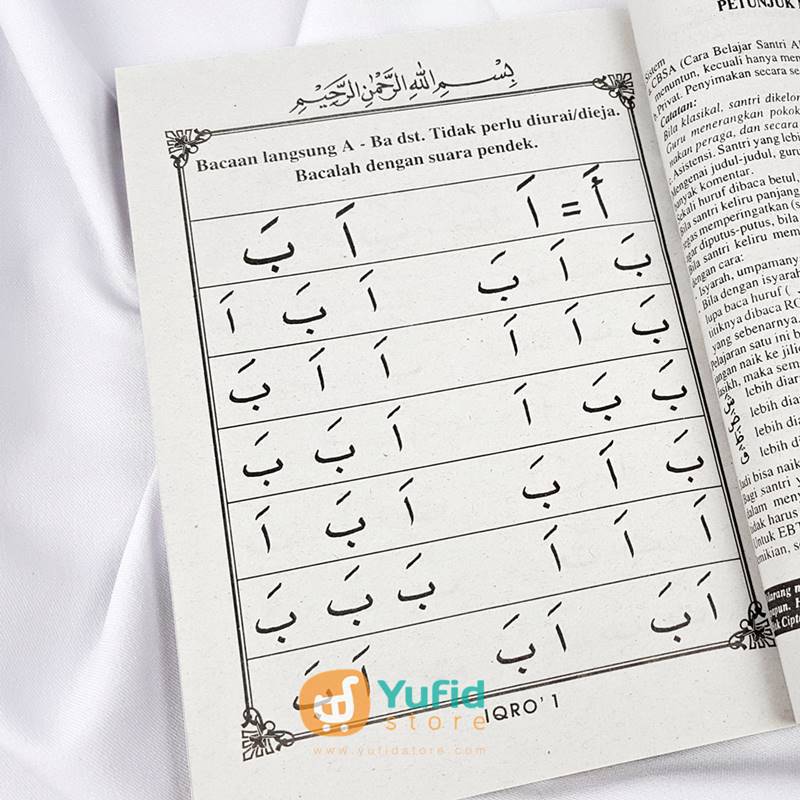 بِسْمِ اللهِ الرَّحْمٰنِ الرَّحِيْمِ
Bacaan langsung A - Ba dst. Tidak perlu diurai/dieja.
Bacalah dengan suara pendek.
أَ = اَ اَ بَ
بَ اَ بَ اَ بَ اَ
بَ اَ اَ اَ اَ بَ
بَ بَ اَ اَ بَ بَ
بَ اَ بَ اَ بَ اَ
اَ اَ اَ بَ بَ بَ
اَ بَ اَ بَ اَ بَ
IQRO' 1
Yufid
store
www.yufidstore.com
PETUNJUK
Sistem
CBSA (Cara Belajar Santri
menuntun, kecuali hanya
Privat. Penyimakan secara
Catatan:
Bila klasikal, santri
Guru menerangkan pokok
peraga, dan secara
Asistensi. Santri yang
Mengenai judul-judul,
banyak komentar.
Sekali huruf dibaca betul,
Bila santri keliru panjang
memperingatkan
diputus-putus, bila
Bila santri keliru
dengan cara:
Isyarah, umpamanya
Bila dengan isyarah
lupa baca huruf (
titiknya dibaca
yang sebenarnya.
Pelajaran satu ini
naik ke
maka
lebih
lebih
lebih
lebih
bisa naik
Bagi santri
dalam
harus
Untuk